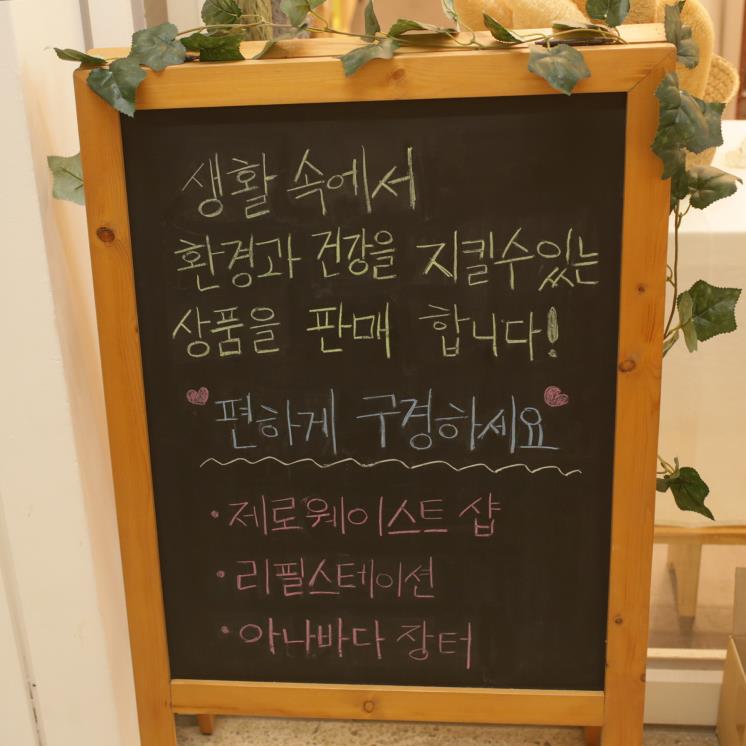 생활 속에서
환경과 건강을 지킬수있는
상품을 판매 합니다!
편하게 구경하세요
• 제로웨이스트 샵
• 리필스테이션
• 아나바다 장터